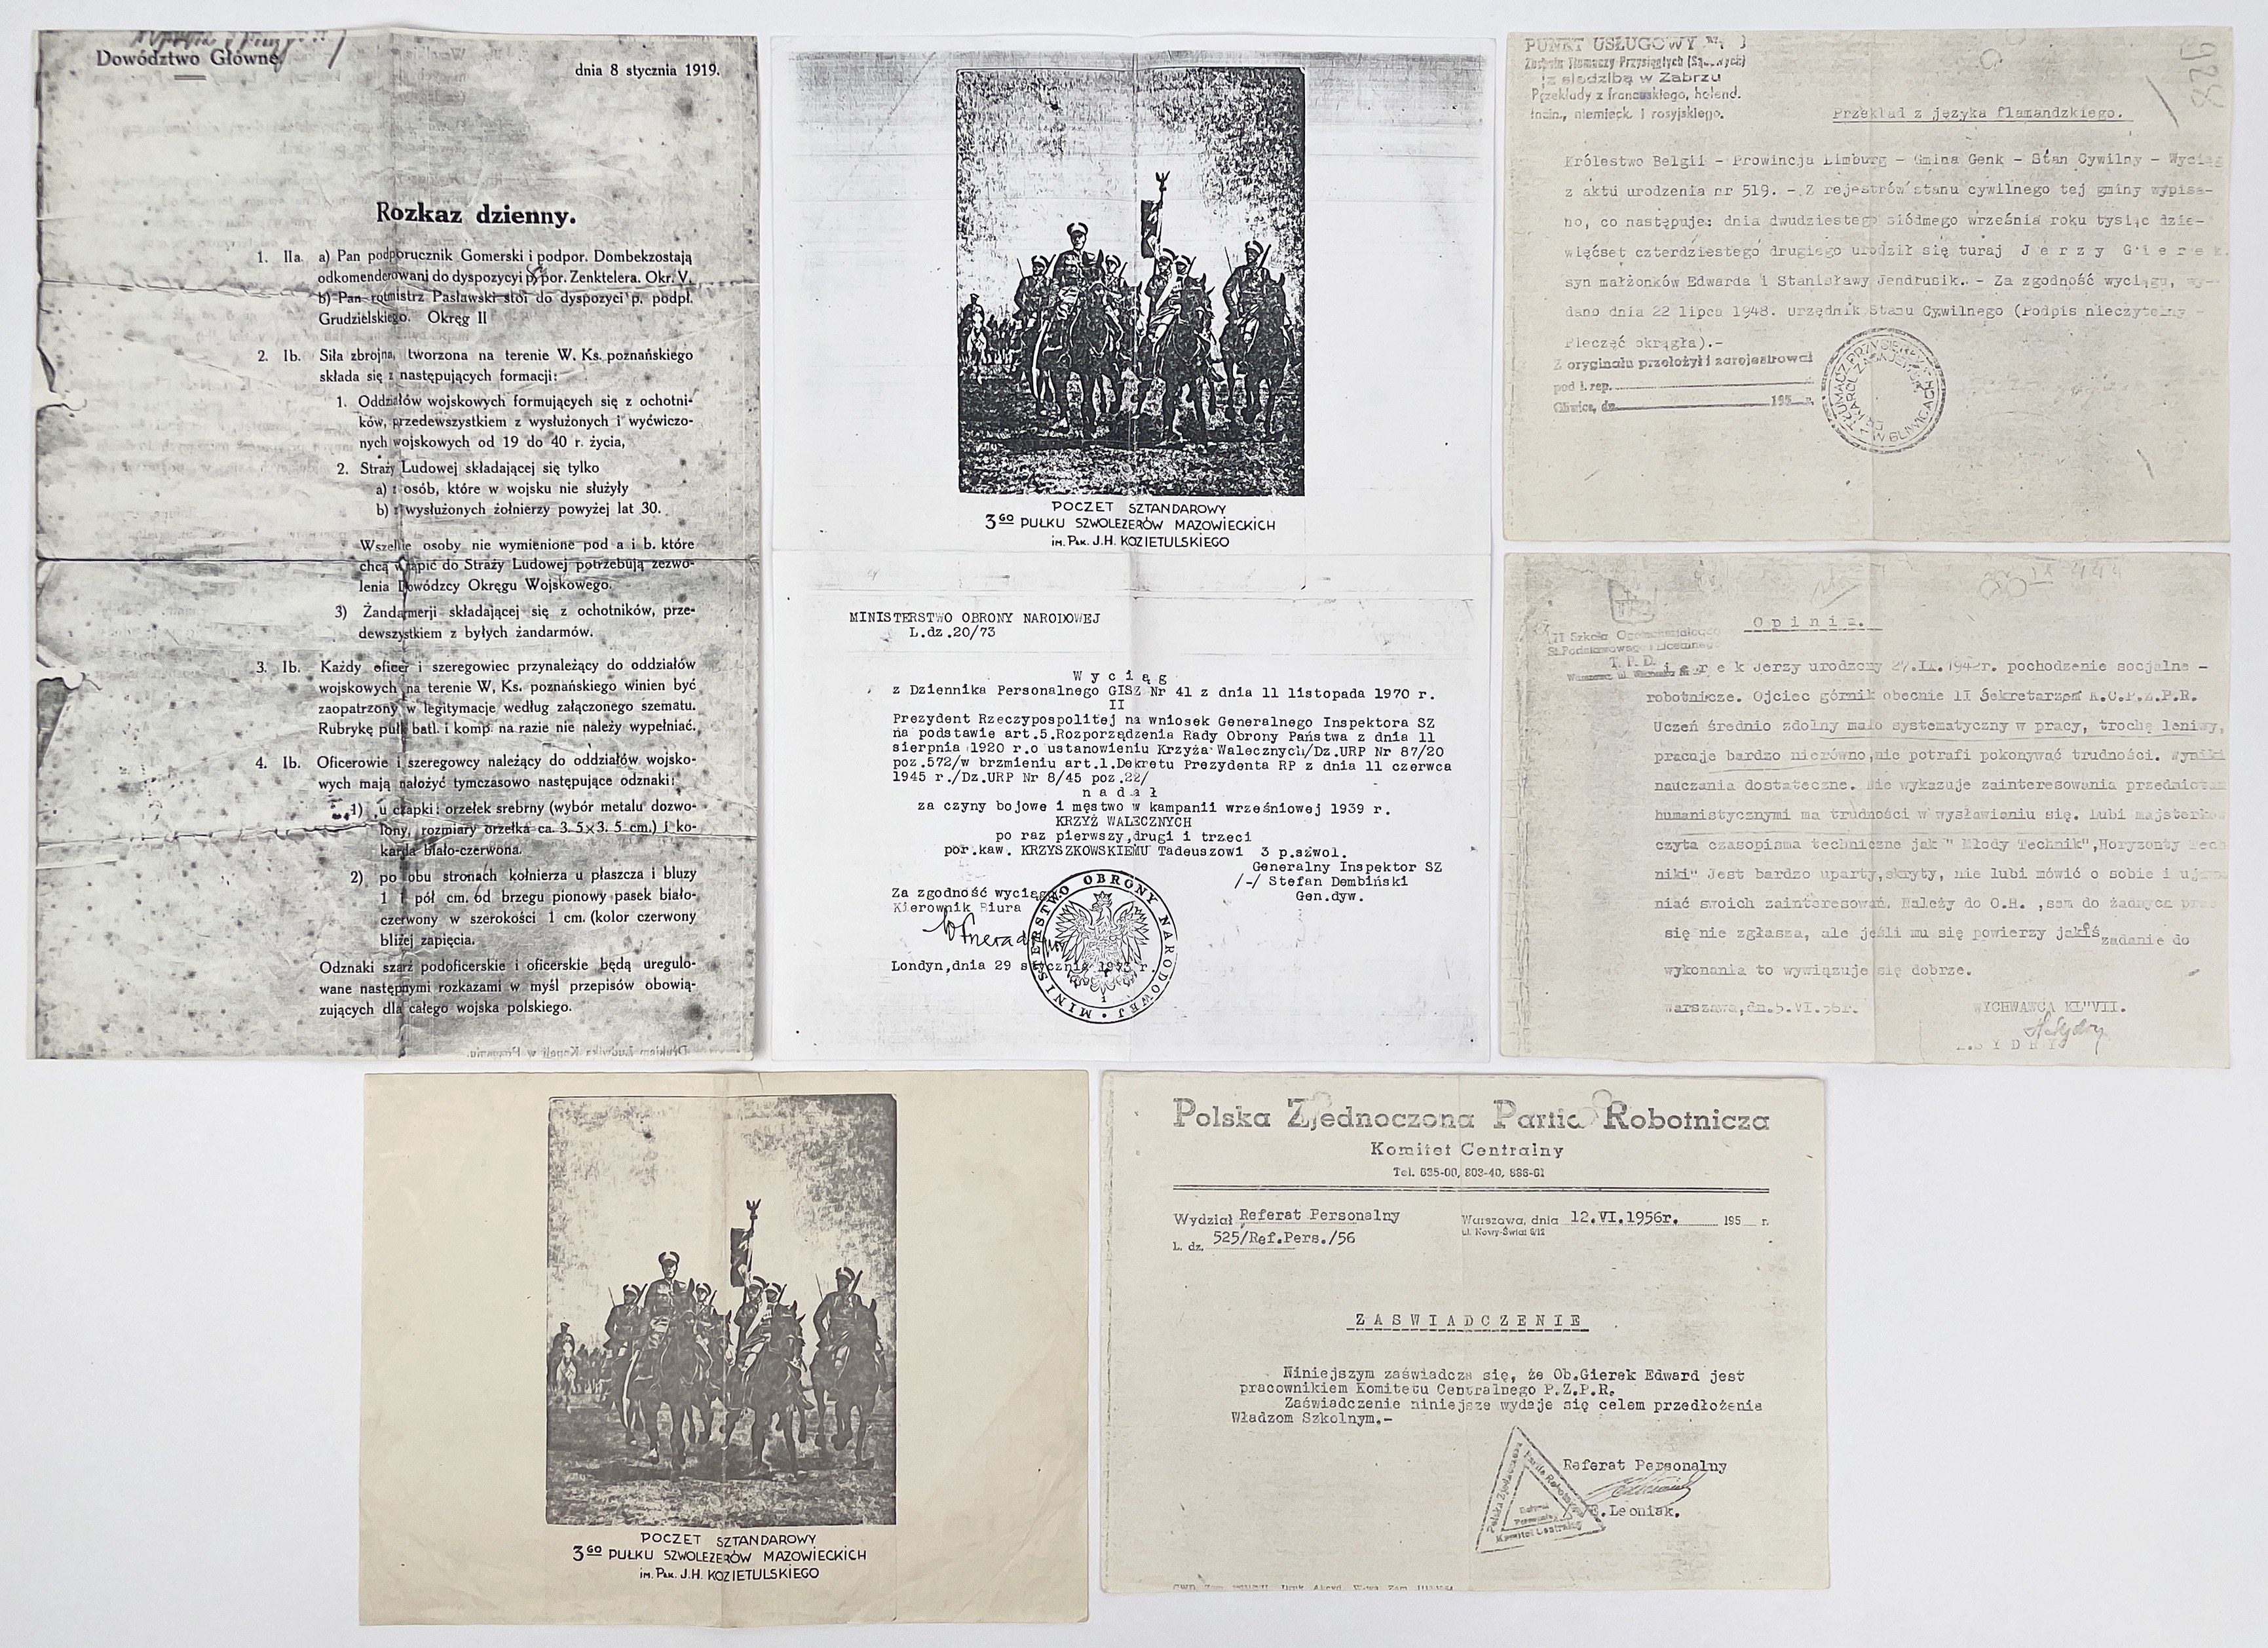 Dowództwo Główne,
dnia 8 stycznia 1919.
Rozkaz dzienny.
1. IIa a) Pan podporucznik Gomerski i podpor. Dombekzostają
odkomenderowani do dyspozycyi ppor. Zenktelera. Okr. V.
b) Pan rotmistrz Pasławski stoi do dyspozyci p. podpł.
Grudzielskiego. Okręg II
2. Ib. Siła zbrojna, tworzona na terenie W. Ks. poznańskiego
składa się z następujących formacji:
1. Oddziałów wojskowych formujących się z ochotni-
ków, przedewszystkiem z wysłużonych i wyćwiczo-
nych wojskowych od 19 do 40 r. życia,
2. Straży Ludowej składającej się tylko
a) z osób, które w wojsku nie służyły
b) z wysłużonych żołnierzy powyżej lat 30.
Wszelkie osoby nie wymienione pod a i b. które
chcą wstąpić do Straży Ludowej potrzebują zezwo-
lenia Dowódzcy Okręgu Wojskowego.
3) Żandarmerji składającej się z ochotników, prze-
dewszystkiem z byłych żandarmów.
3. Ib. Każdy oficer i szeregowiec przynależący do oddziałów
wojskowych na terenie W. Ks. poznańskiego winien być
zaopatrzony w legitymacje według załączonego szematu.
Rubrykę pułk batl. i komp. na razie nie należy wypełniać.
4. Ib. Oficerowie i szeregowcy należący do oddziałów wojsko-
wych mają nałożyć tymczasowo następujące odznaki:
1) u czapki: orzełek srebrny (wybór metalu dozwo-
lony, rozmiary orzełka ca. 3. 5×3. 5 cm.) i ko-
karda biało-czerwona.
2) po obu stronach kołnierza u płaszcza i bluzy
1 i pół cm. od brzegu pionowy pasek biało-
czerwony w szerokości 1 cm. (kolor czerwony
bliżej zapięcia.
Odznaki szarż podoficerskie i oficerskie będą uregulo-
wane następnymi rozkazami w myśl przepisów obowią-
zujących dla całego wojska polskiego.
Drukiem Ludwika Kapeli w Poznaniu.
POCZET SZTANDAROWY
3GO PUŁKU SZWOLEZERÓW MAZOWIECKICH
IM. PŁK. J.H. KOZIETULSKIEGO
MINISTERSTWO OBRONY NARODOWEJ
L.dz.20/73
Wyciąg
z Dziennika Personalnego GISZ Nr 41 z dnia 11 listopada 1970 r.
II
Prezydent Rzeczypospolitej na wniosek Generalnego Inspektora SZ
na podstawie art.5.Rozporządzenia Rady Obrony Państwa z dnia 11
sierpnia 1920 r.o ustanowieniu Krzyża Walecznych/Dz.URP Nr 87/20
poz.572/w brzmieniu art.1.Dekretu Prezydenta RP z dnia 11 czerwca
1945 r./Dz.URP Nr 8/45 poz.22/
nadał
za czyny bojowe i męstwo w kampanii wrześniowej 1939 r.
KRZYŻ WALECZNYCH
po raz pierwszy,drugi i trzeci
por.kaw. KRZYSZKOWSKIEMU Tadeuszowi 3 p.szwol.
Generalny Inspektor SZ
/-/ Stefan Dembiński
Gen.dyw.
Za zgodność wyciągu
Kierownik Biura
Londyn,dnia 29 stycznia 1973 r.
MINISTERSTWO OBRONY NARODOWEJ
PUNKT USŁUGOWY Nr 1
Zespołu Tłumaczy Przysięgłych (Sądowych)
z siedzibą w Zabrzu
Przekłady z francuskiego, holend.
łacin., niemieck. i rosyjskiego.
928
Przekład z języka flamandzkiego.
Królestwo Belgii - Prowincja Limburg - Gmina Genk - Stan Cywilny - Wyciąg
z aktu urodzenia nr 519. - Z rejestrów stanu cywilnego tej gminy wypisa-
no, co następuje: dnia dwudziestego siódmego września roku tysiąc dzie-
więćset czterdziestego drugiego urodził się tutaj Jerzy Gierek.
syn małżonków Edwarda i Stanisławy Jendrusik. - Za zgodność wyciągu, wy-
dano dnia 22 lipca 1948. Urzędnik Stanu Cywilnego (Podpis nieczytelny -
Pieczęć okrągła).-
Z oryginału przełożył i zarejestrował
pod l. rep.
Gliwice, dn. 195 r.
W GLIWICACH
Opinia.
II Szkoła Ogólnokształcąca
St.Podstawowego i Licealnego
T. P. D.
Gierek Jerzy urodzony 27.IX.1942r. pochodzenie socjalne -
robotnicze. Ojciec górnik obecnie II Sekretarzem K.C.P.Z.P.R.
Uczeń średnio zdolny mało systematyczny w pracy, trochę leniwy,
pracuje bardzo nierówno,nie potrafi pokonywać trudności. Wyniki
nauczania dostateczne. Nie wykazuje zainteresowania przedmiotam
humanistycznymi ma trudności w wysławianiu się. Lubi majsterko
czyta czasopisma techniczne jak " Młody Technik",Horyzonty Tech
niki" Jest bardzo uparty,skryty, nie lubi mówić o sobie i ujaw
niać swoich zainteresowań. Należy do O.H. ,sam do żadnych prac
się nie zgłasza, ale jeśli mu się powierzy jakiś zadanie do
wykonania to wywiązuje się dobrze.
Warszawa,dn.5.VI.56r.
WYCHWAWCA KL"VII.
H.SYDRY
POCZET SZTANDAROWY
3GO PUŁKU SZWOLEZERÓW MAZOWIECKICH
IM. PŁK. J.H. KOZIETULSKIEGO
Polska Zjednoczona Partia Robotnicza
Komitet Centralny
Tel. 635-00, 803-40, 886-61
Wydział Referat Personalny
Warszawa, dnia 12.VI.1956r. 195 r.
ul. Nowy-Świat 6/12
L. dz. 525/Ref.Pers./56
ZASWIADCZENIE
Niniejszym zaświadcza się, że Ob.Gierek Edward jest
pracownikiem Komitetu Centralnego P.Z.P.R.
Zaświadczenie niniejsze wydaje się celem przedłożenia
Władzom Szkolnym.-
Referat Personalny
E.Leoniak.
Polska Zjednoczona Partia Robotnicza
Komitet Centralny